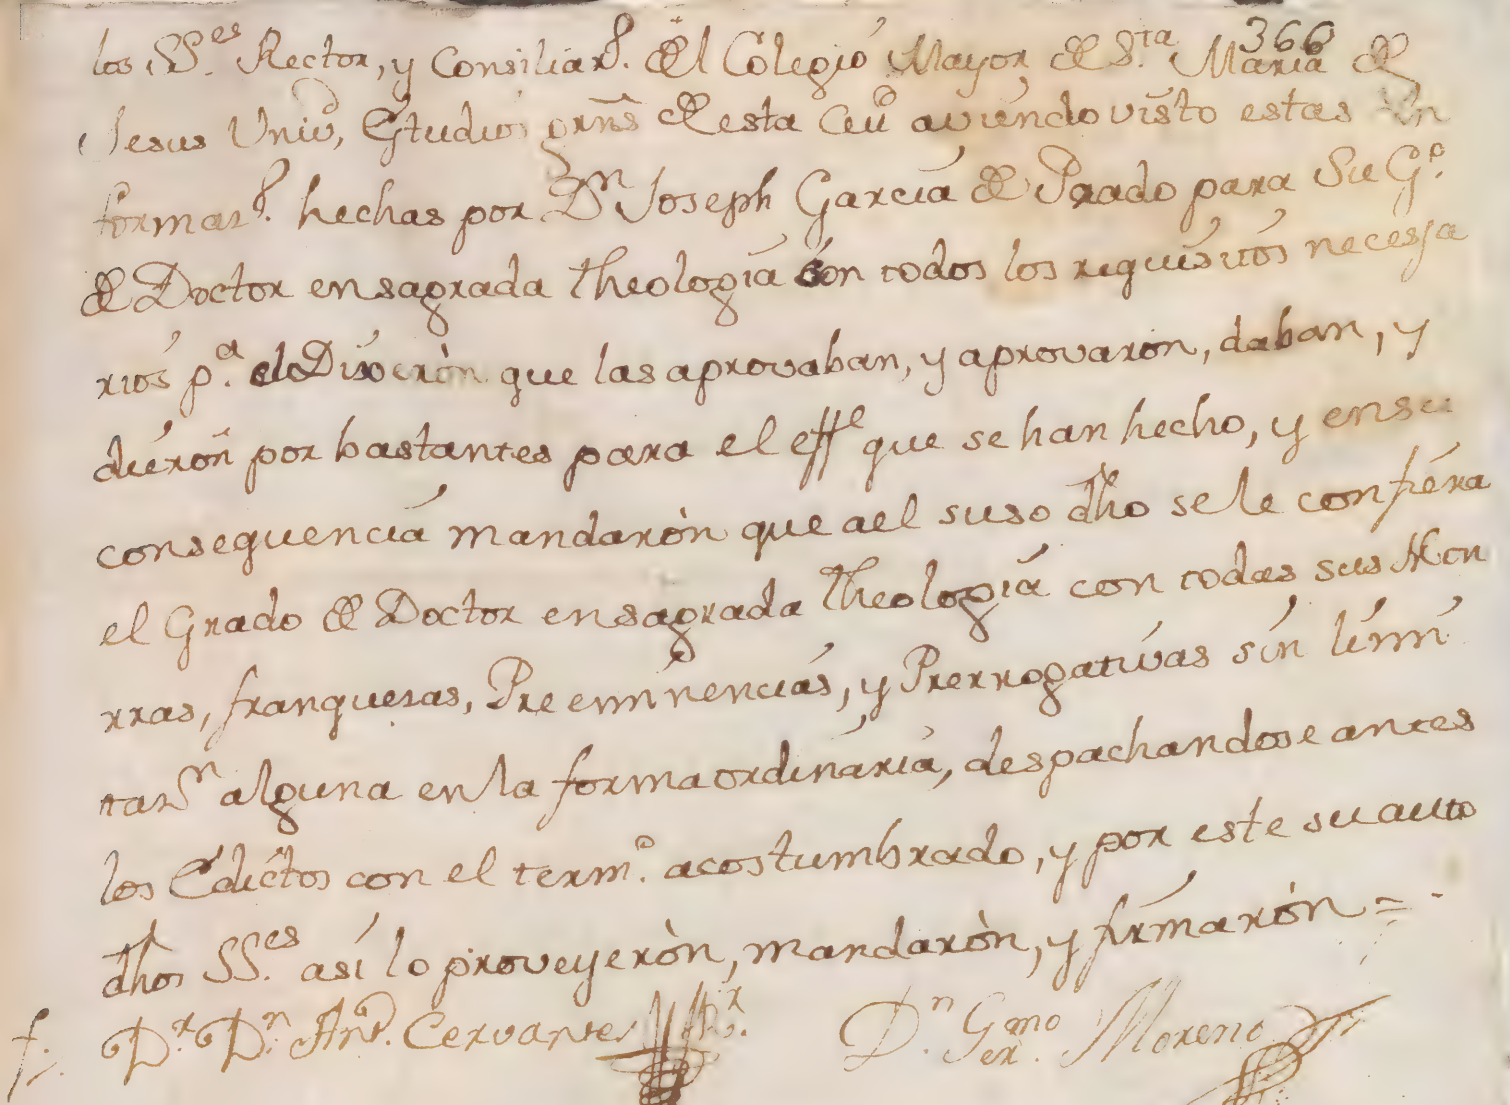 366
los SS.es Rector, y Consiliars. del Colegio Mayor de S.ta Maria de
Jesus Univd, Estudio grãs de esta Ciud aviendo visto estas in
formars. hechas por Dn Joseph Garcia de Prado para Su Gdo.
de Doctor en sagrada Theologia con todos los requisitos necessa
rios p.a el Dixeròn que las aprovaban, y aprovaron, daban, y
dieron por bastantes para el effe que se han hecho, y en su
consequencia mandaròn que a el suso dho se le confiera
el Grado de Doctor en sagrada Theologia con todas sus Hon
rras, franquesas, Preeminencias, y Prerrogativas sin limi
tazn alguna en la forma ordinaria, despachandose antes
los Edictos con el termo. acostumbrado, y por este su auto
dhos SS.es asi lo proveyeròn, mandaròn, y firmaròn =
Dr. Dn. Anto. Cervantes Rr.
Dn. Germo. Moreno